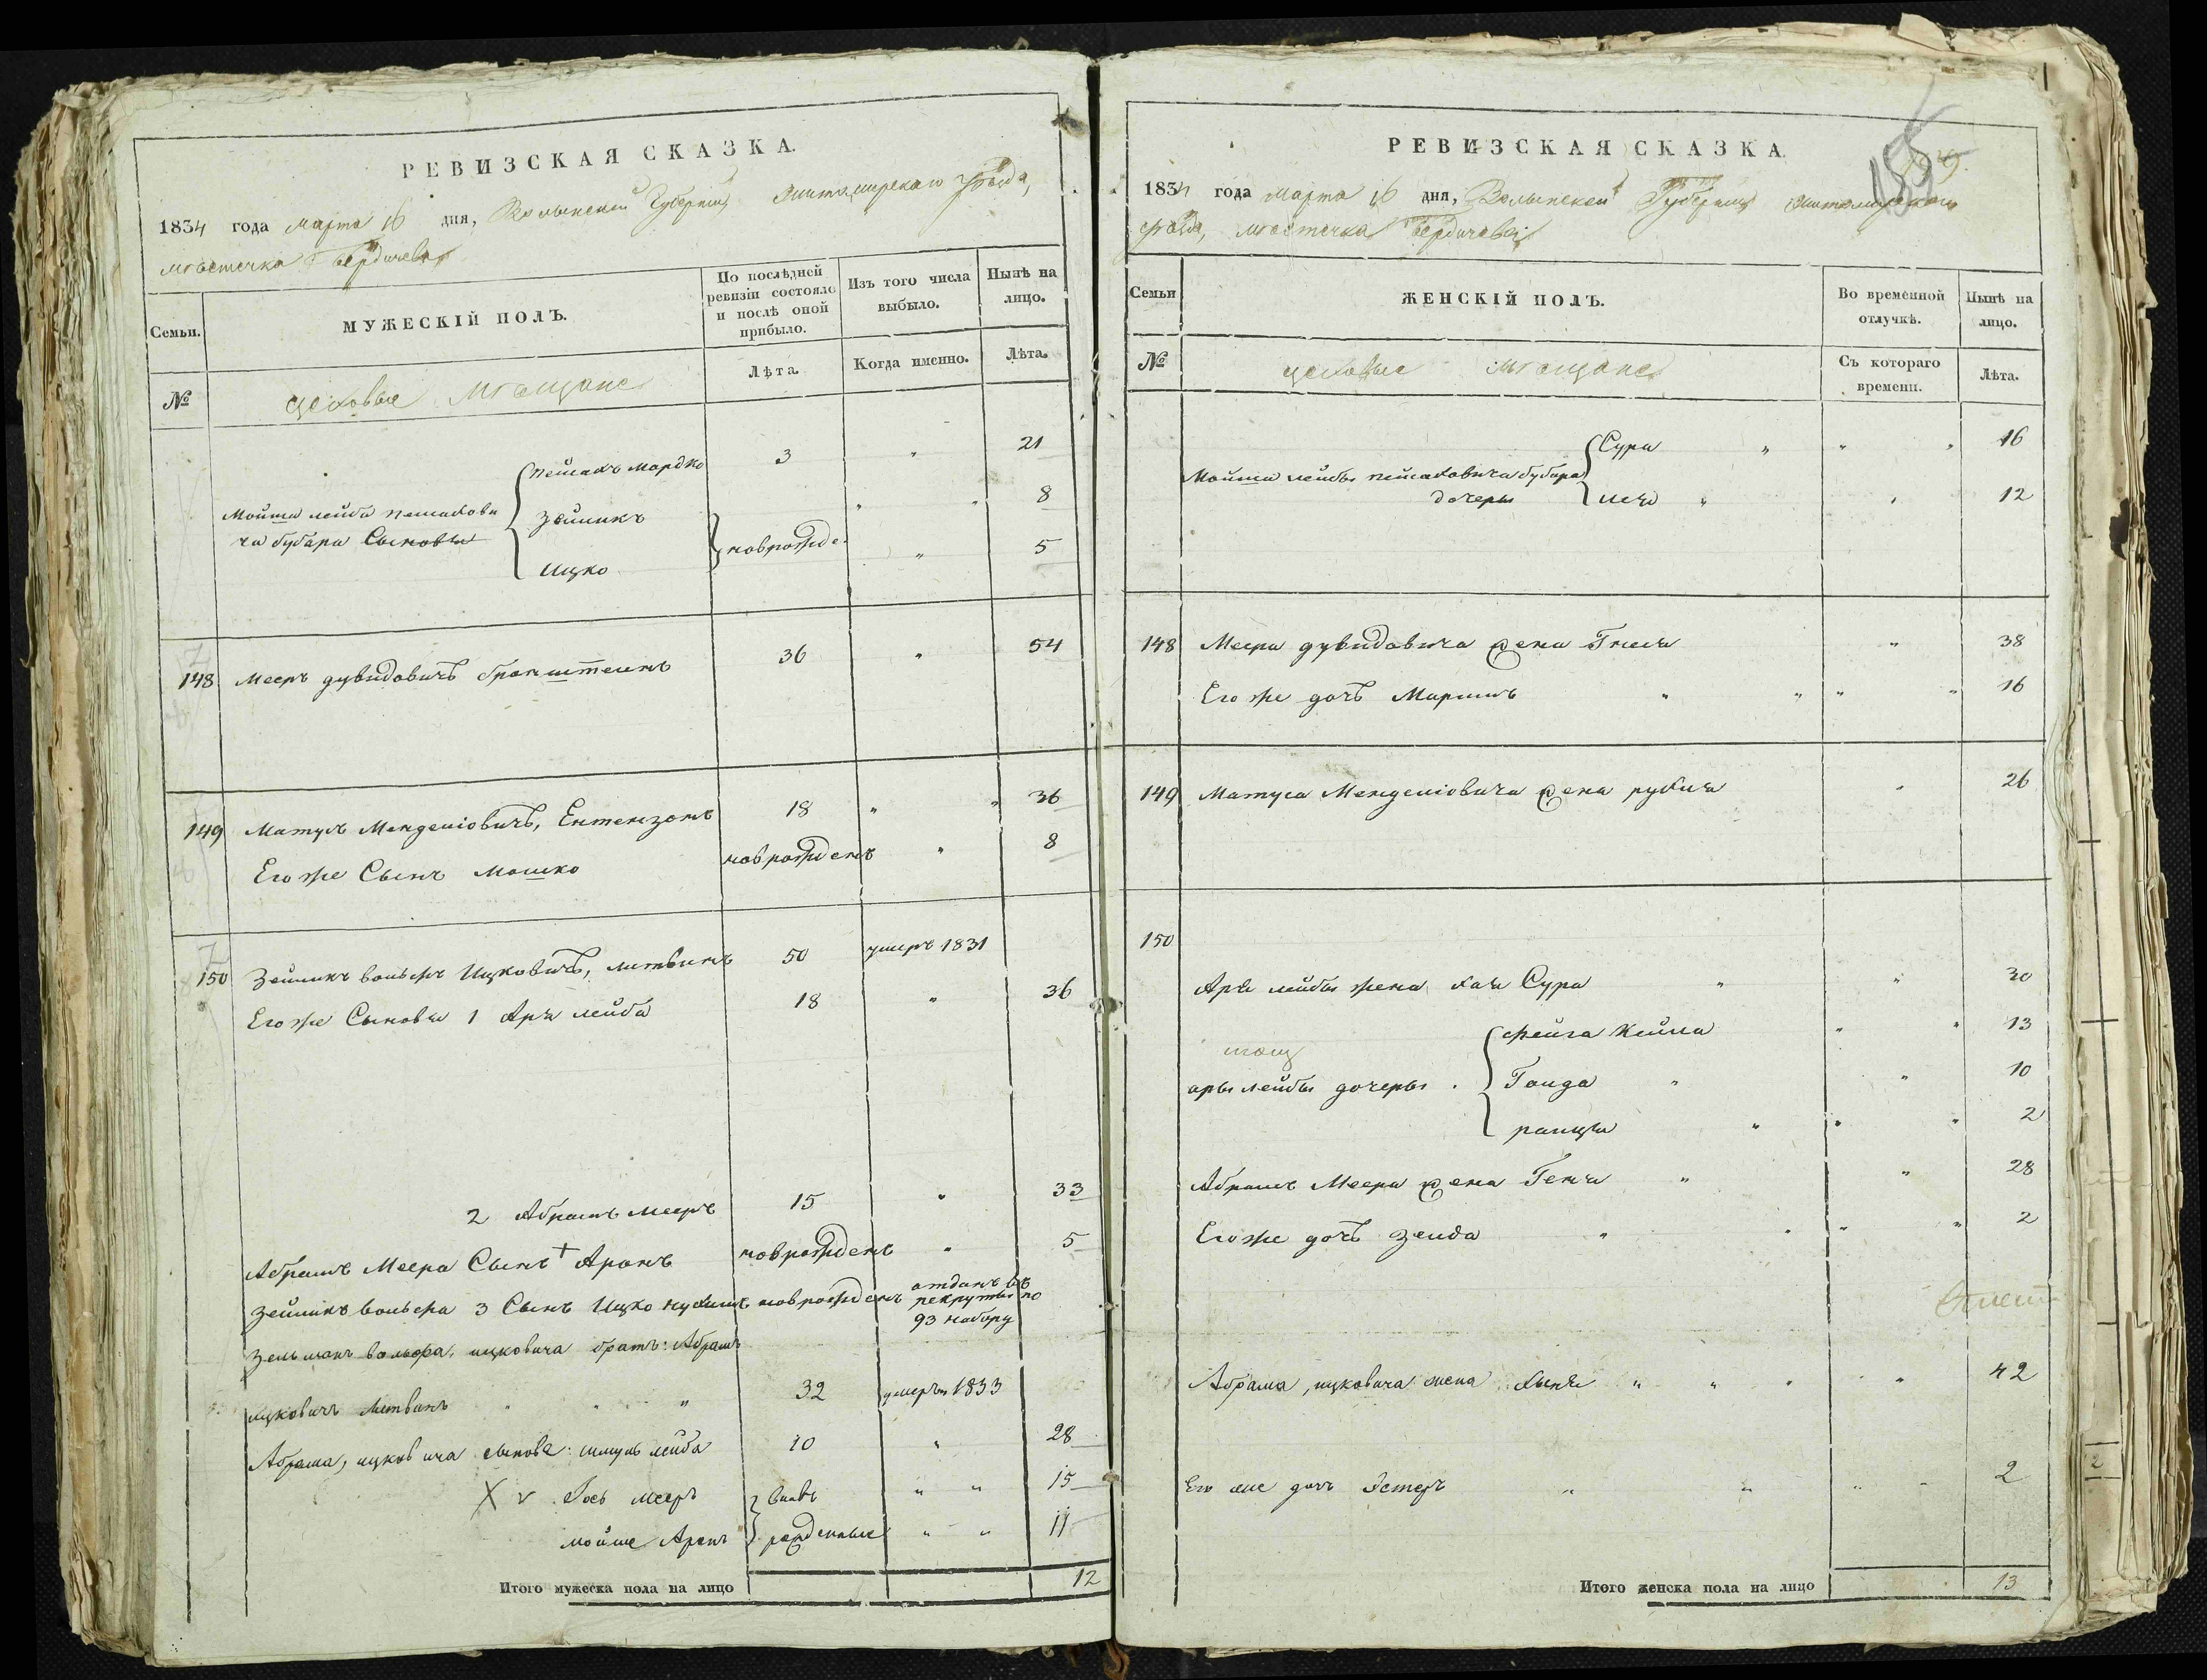 РЕВИЗСКАЯ СКАЗКА.
1834 года Марта 16 дня, Волынской Губерніи, Житомирскаго уѣзда,
мѣстечка Бердичева
Семьи.
МУЖЕСКІЙ ПОЛЪ.
По послѣдней ревизіи состояло и послѣ оной прибыло.
Изъ того числа выбыло.
Нынѣ на лицо.
№
цеховые Мѣщане
Лѣта.
Когда именно.
Лѣта.
Пейсахъ Мордко 3 " 21
Мойша лейба пейсахови Зейликъ " " 8
ча бубара Сыновья новрожде
Ицко " 5
148 Мееръ дувидовичъ бронштеинъ 36 " 54
149 Матусъ Менделіовичъ, Ентензонъ 18 " " 36
Его же Сынъ Мошко новрожденъ " 8
150 Зейликъ вольфъ Ицковичъ, литвинъ 50 умеръ 1831
Его же Сыновья 1 Аръя лейба 18 " 36
2 Абрамъ Мееръ 15 " 33
Абрамъ Меера Сынъ + Аронъ новрожденъ " 5
Зейликъ вольфа 3 Сынъ Ицко нухимъ новрожденъ отданъ въ рекруты по 93 набору
Зельманъ вольфа, ицковича братъ: Абрамъ
ицковичъ Литвинъ " " " 32 умеръ 1833
Абрама, ицковича сыновья: шмуль лейба 10 " 28
X v Іось мееръ вновь " " 15
мойше Аронъ рожденные " " 11
Итого мужеска пола на лицо 12
РЕВИЗСКАЯ СКАЗКА.
1834 года Марта 16 дня, Волынской Губерніи Житомирскаго
уѣзда, мѣстечка Бердичева
Семьи
ЖЕНСКІЙ ПОЛЪ.
Во временной отлучкѣ.
Нынѣ на лицо.
№
цеховые мѣщане
Съ котораго времени.
Лѣта.
Сура " " " 16
Мойши лейбы пейсаховича бубара
дочеры " " 12
148 Меера дувидовича жена Гнеся " 38
Его же дочъ Маріимъ " " " " 16
149 Матуса Менделіовича жена рухля " 26
150
Аръи лейбы жена хая Сура " " 30
Фейга Кейла " " 13
ары лейбы дочеры Голда " " 10
" " " 2
Абрамъ Меера жена Геня " " 28
Его же дочъ зелда " " " " 2
Абрама, ицковича жена хыня " " " " 42
Его же дочъ Эстеръ " " " " 2
Итого женска пола на лицо 13